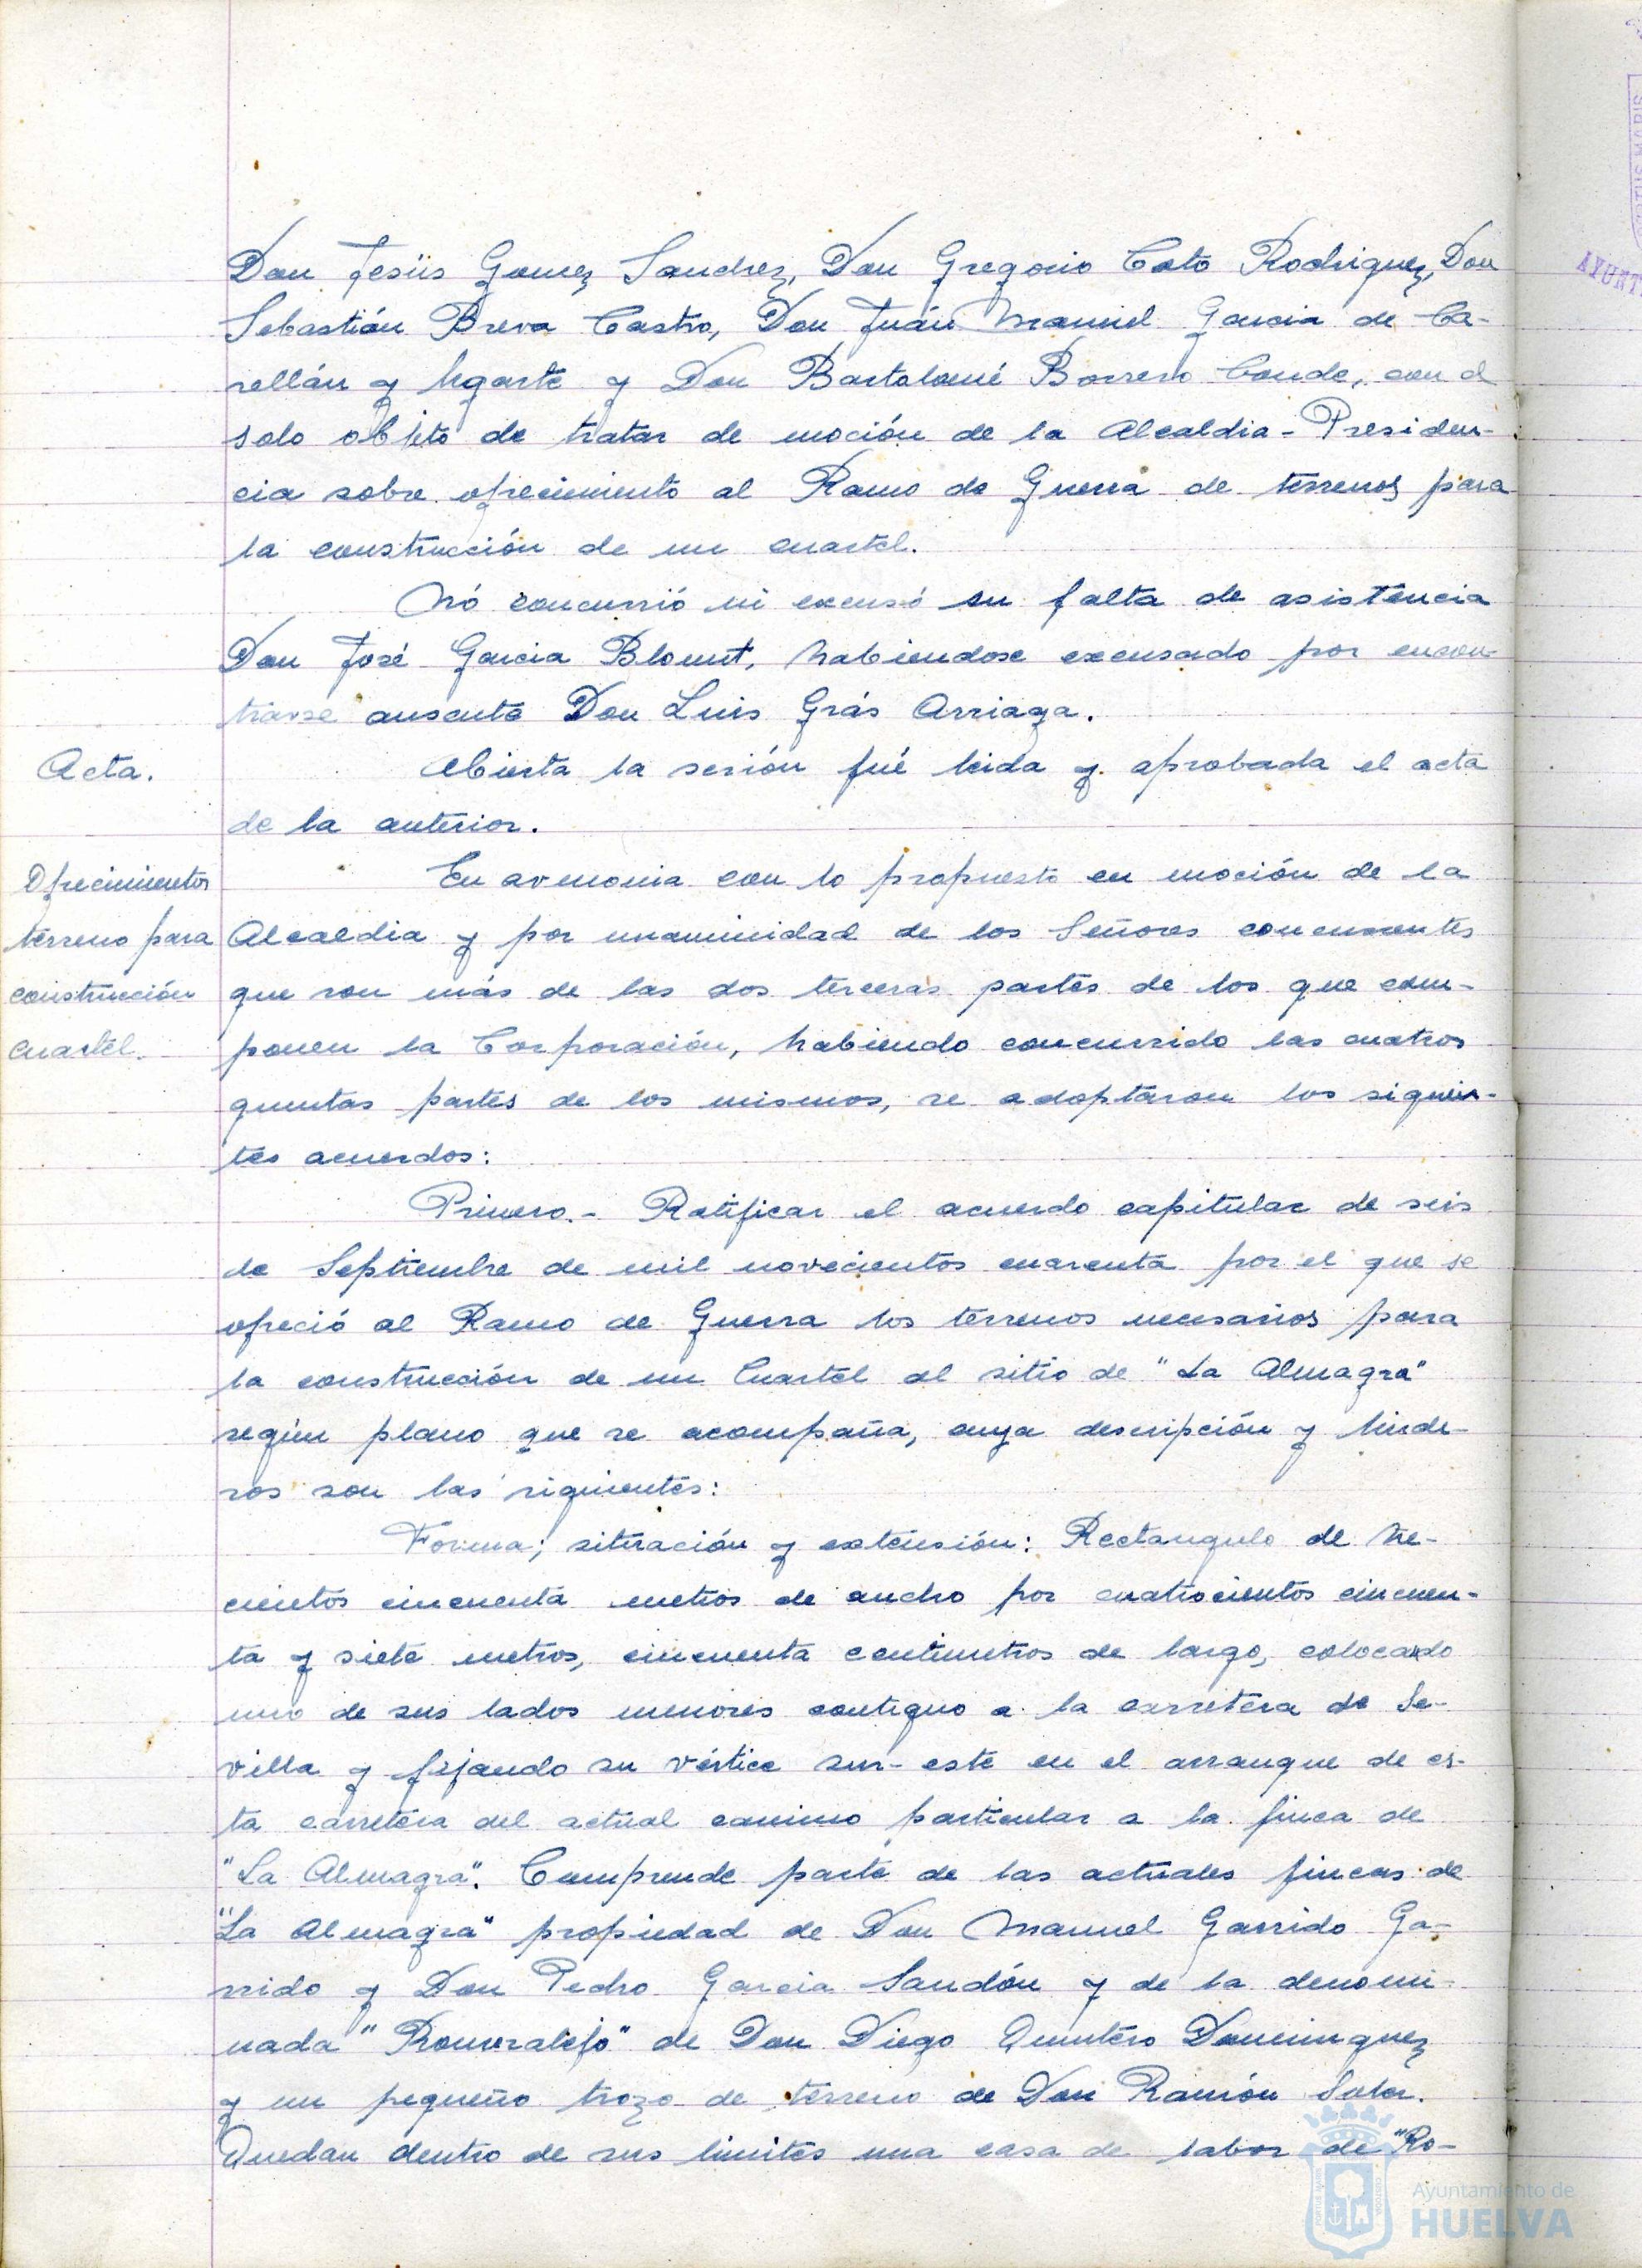 Don Jesús Gomez Sanchez, Don Gregorio Coto Rodriguez, Don
Sebastián Breva Castro, Don Juán Manuel Garcia de Ca-
rellán y Ugarte y Don Bartolomé Borrero Conde, con el
solo objeto de tratar de moción de la Alcaldia-Presiden-
cia sobre ofrecimiento al Ramo de Guerra de terrenos para
la construcción de un cuartel.
Nó concurrió ni excusó su falta de asistencia
Don José Garcia Blount, habiendose excusado por encon-
trarse ausente Don Luis Grás Arriaga.
Acta.
Abierta la sesión fué leida y aprobada el acta
de la anterior.
Ofrecimientos
terreno para
construcción
cuartel.
En avenonia con lo propuesto en moción de la
Alcaldia y por unanimidad de los Señores concurrentes
que son más de las dos terceras partes de los que com-
ponen la Corporación, habiendo concurrido las cuatros
quintas partes de los mismos, se adoptaron los siguien-
tes acuerdos:
Primero.- Ratificar el acuerdo capitular de seis
de Septiembre de mil novecientos cuarenta por el que se
ofreció al Ramo de Guerra los terrenos necesarios para
la construcción de un Cuartel al sitio de "La Almagra"
según plano que se acompaña, cuya descripción y linde-
ros son las siguientes:
Forma; situación y extensión: Rectangulo de tre-
cientos cincuenta metros de ancho por cuatrocientos cincuen-
ta y siete metros, cincuenta centimetros de largo, colocado
uno de sus lados menores contiguo a la carretera de Se-
villa y fijando su vértice sur-este en el arranque de es-
ta carretera del actual camino particular a la finca de
"La Almagra". Comprende parte de las actuales fincas de
"La Almagra" propiedad de Don Manuel Garrido Ga-
rrido y Don Pedro Garcia Sandón y de la denomi-
nada "Romeralejo" de Don Diego Quintero Dominguez
y un pequeño trozo de terreno de Don Ramón Soler.
Quedan dentro de sus limites una casa de labor de "Ro-
Ayuntamiento de
HUELVA